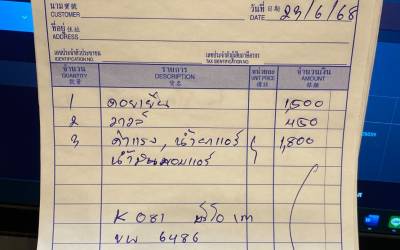 นามลูกค้า
CUSTOMER
วันที่
DATE 23/6/68
ที่อยู่
ADDRESS
เลขประจำตัวประชาชน
IDENTIFICATION NO.
เลขประจำตัวผู้เสียภาษีอากร
TAX IDENTIFICATION NO.
จำนวน รายการ หน่วยละ จำนวนเงิน
QUANTITY DESCRIPTION UNIT PRICE AMOUNT
1 คอยเย็น 1,500
2 วาล์ว 450
3 ค่าแรง , น้ำยาแอร์ 1,800
น้ำมันคอมแอร์
K 081
6486